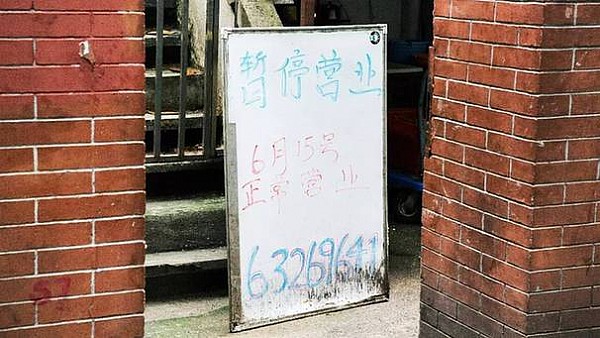 暂停营业
6月15号
正常营业
63269641
57